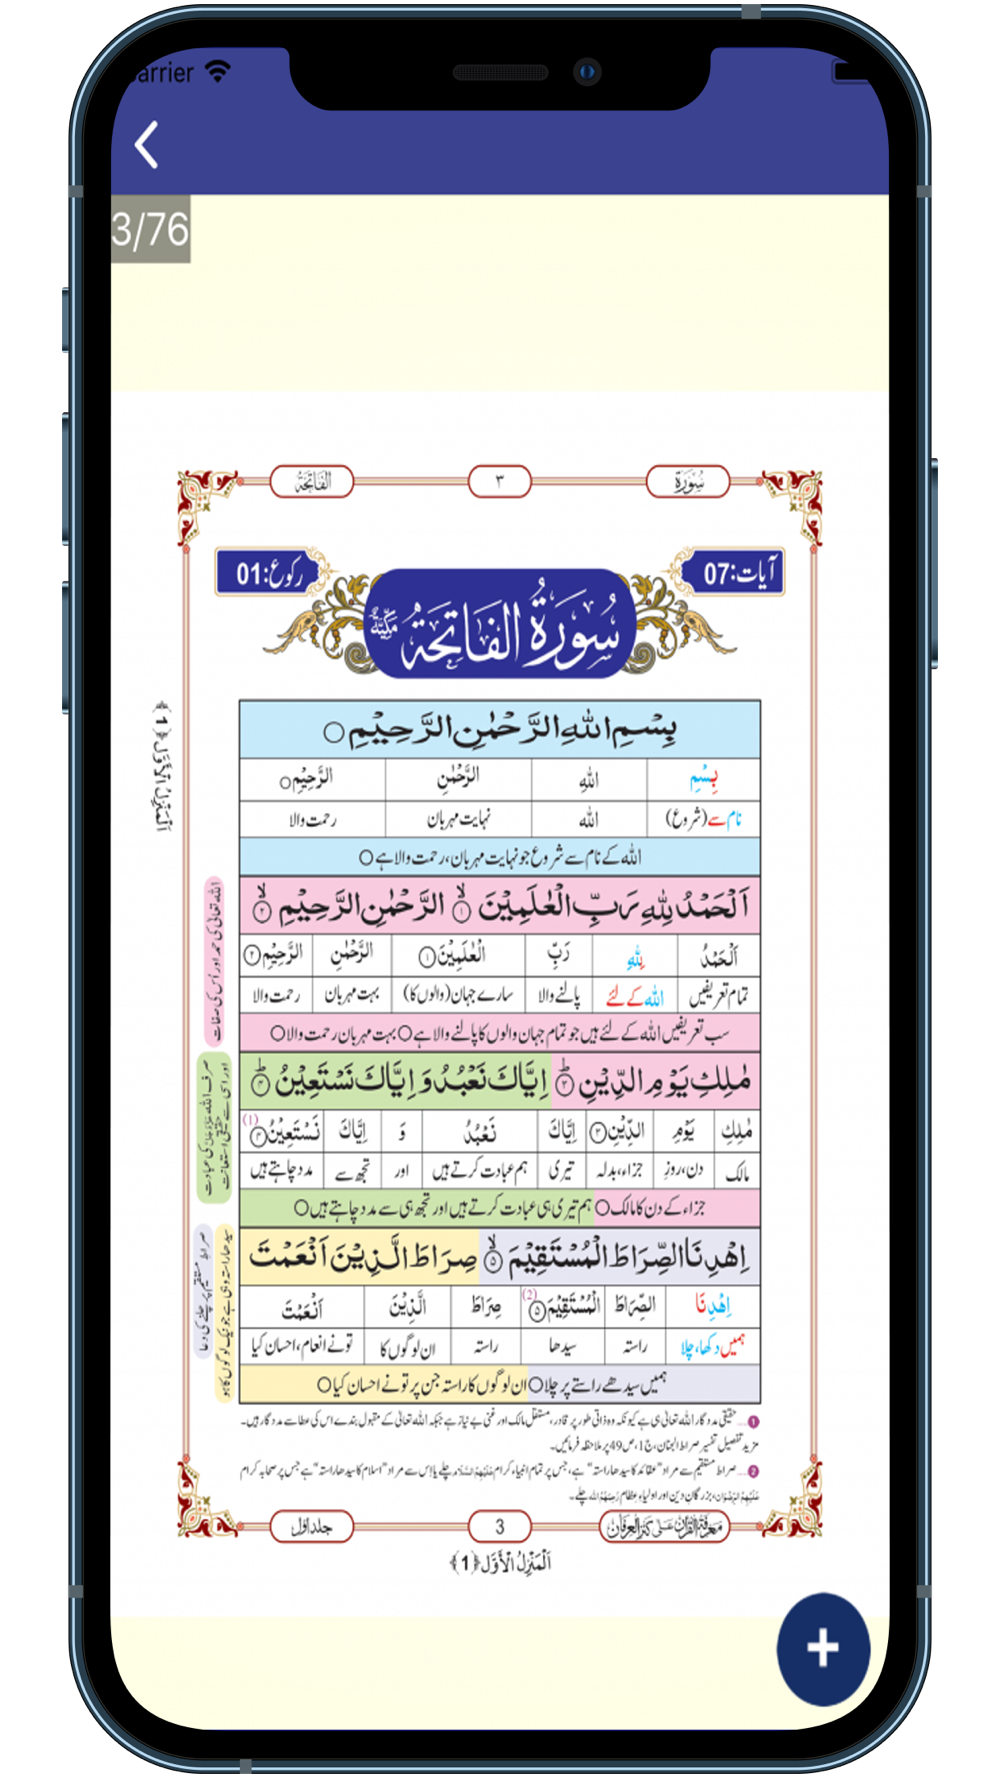 Carrier
3/76
سُوْرَۃُ ۳ الفَاتِحَۃُ
آیات:07 رکوع:01
سُوْرَۃُ الفَاتِحَۃُ مَکِّیَّۃٌ
بِسْمِ اللّٰہِ الرَّحْمٰنِ الرَّحِیْمِ ○
بِسْمِ اللّٰہِ الرَّحْمٰنِ الرَّحِیْمِ ○
نام سے (شروع) اللّٰہ نہایت مہربان رحمت والا
اللّٰہ کے نام سے شروع جو نہایت مہربان، رحمت والا ہے ○
اَلْحَمْدُ لِلّٰہِ رَبِّ الْعٰلَمِیْنَ ۙ﴿۱﴾ الرَّحْمٰنِ الرَّحِیْمِ ۙ﴿۲﴾
اَلْحَمْدُ لِلّٰہِ رَبِّ الْعٰلَمِیْنَ ﴿۱﴾ الرَّحْمٰنِ الرَّحِیْمِ ﴿۲﴾
تمام تعریفیں اللّٰہ کے لئے پالنے والا سارے جہان (والوں کا) بہت مہربان رحمت والا
سب تعریفیں اللّٰہ کے لئے ہیں جو تمام جہان والوں کا پالنے والا ہے ○ بہت مہربان رحمت والا ○
مٰلِکِ یَوْمِ الدِّیْنِ ؕ﴿۳﴾ اِیَّاکَ نَعْبُدُ وَ اِیَّاکَ نَسْتَعِیْنُ ؕ﴿۴﴾
مٰلِکِ یَوْمِ الدِّیْنِ ﴿۳﴾ اِیَّاکَ نَعْبُدُ وَ اِیَّاکَ نَسْتَعِیْنُ ﴿۴﴾ (1)
مالک دن، روزِ جزاء، بدلہ تیری ہم عبادت کرتے ہیں اور تجھ سے مدد چاہتے ہیں
جزاء کے دن کا مالک ○ ہم تیری ہی عبادت کرتے ہیں اور تجھ ہی سے مدد چاہتے ہیں ○
اِھْدِنَا الصِّرَاطَ الْمُسْتَقِیْمَ ۙ﴿۵﴾ صِرَاطَ الَّذِیْنَ اَنْعَمْتَ
اِھْدِنَا الصِّرَاطَ الْمُسْتَقِیْمَ ﴿۵﴾ (2) صِرَاطَ الَّذِیْنَ اَنْعَمْتَ
ہمیں دکھا، چلا راستہ سیدھا راستہ ان لوگوں کا تو نے انعام، احسان کیا
ہمیں سیدھے راستے پر چلا ○ ان لوگوں کا راستہ جن پر تو نے احسان کیا ○
اللّٰہ تعالیٰ کی حمد اور اس کی صفات
صرف اللّٰہ عَزَّوَجَلَّ کی عبادت
اور اسی سے حقیقی استعانت
صراطِ مستقیم پر چلنے کی دعا
سیدھا راستہ وہی ہے جو نیک لوگوں کا ہو
اَلْمَنْزِلُ الْاَوَّل ﴿1﴾
1 ...حقیقی مددگار اللّٰہ تعالیٰ ہی ہے کیونکہ وہ ذاتی طور پر قادر، مستقل مالک اور غنی بے نیاز ہے جبکہ اللّٰہ تعالیٰ کے مقبول بندے اس کی عطا سے مددگار ہیں۔
مزید تفصیل تفسیر صراط الجنان، ج1، ص49 پر ملاحظہ فرمائیں۔
2 ...صراطِ مستقیم سے مراد "عقائد کا سیدھا راستہ" ہے، جس پر تمام انبیاء کرام عَلَیْہِمُ السَّلَام چلے یا اس سے مراد "اسلام کا سیدھا راستہ" ہے جس پر صحابہ کرام
عَلَیْہِمُ الرِّضْوَان، بزرگانِ دین اور اولیاءِ عظام رَحِمَہُمُ اللہ چلے۔
مَعْرِفَۃُ الْقُرْاٰن عَلٰی کَنْزِ الْعِرْفَان 3 جلد اوّل
اَلْمَنْزِلُ الْاَوَّل ﴿1﴾